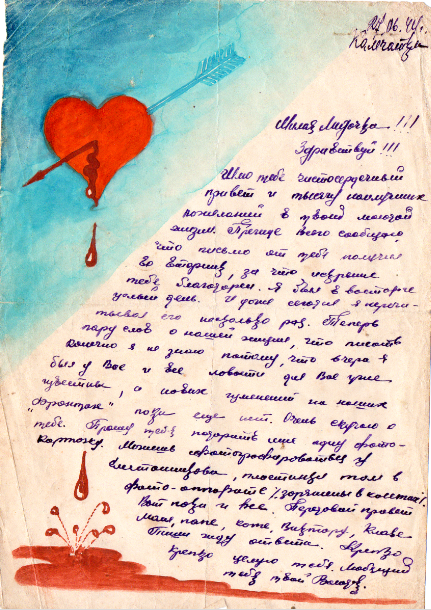 22/06.44г.
Камчатка
Милая Лидочка!!!
Здравствуй!!!
Шлю тебе чистосердечный
привет и тысячу наилучших
пожеланий в твоей молодой
жизни. Прежде всего сообщаю,
что письмо от тебя получил
во вторник, за что искренне
тебе благодарен. Я был в восторге
целый день. И даже сегодня я перечи-
тывал его несколько раз. Теперь
пару слов о нашей жизни, что писать
конечно я не знаю потому, что вчера я
был у Вас и все новости для Вас уже
известны, а новых изменений на наших
"фронтах" пока еще нет. Очень скучаю о
тебе. Прошу тебя подарить мне одну фото-
карточку. Можешь сфотографироваться у
пластинки там в
фото-аппарате /заряжены в кассетах/.
Вот пока и все. Передавай привет
маме, папе, Коте, Виктору, Клаве
Пиши жду ответа. Крепко
крепко целую тебя. Любящий
тебя твой Володя.